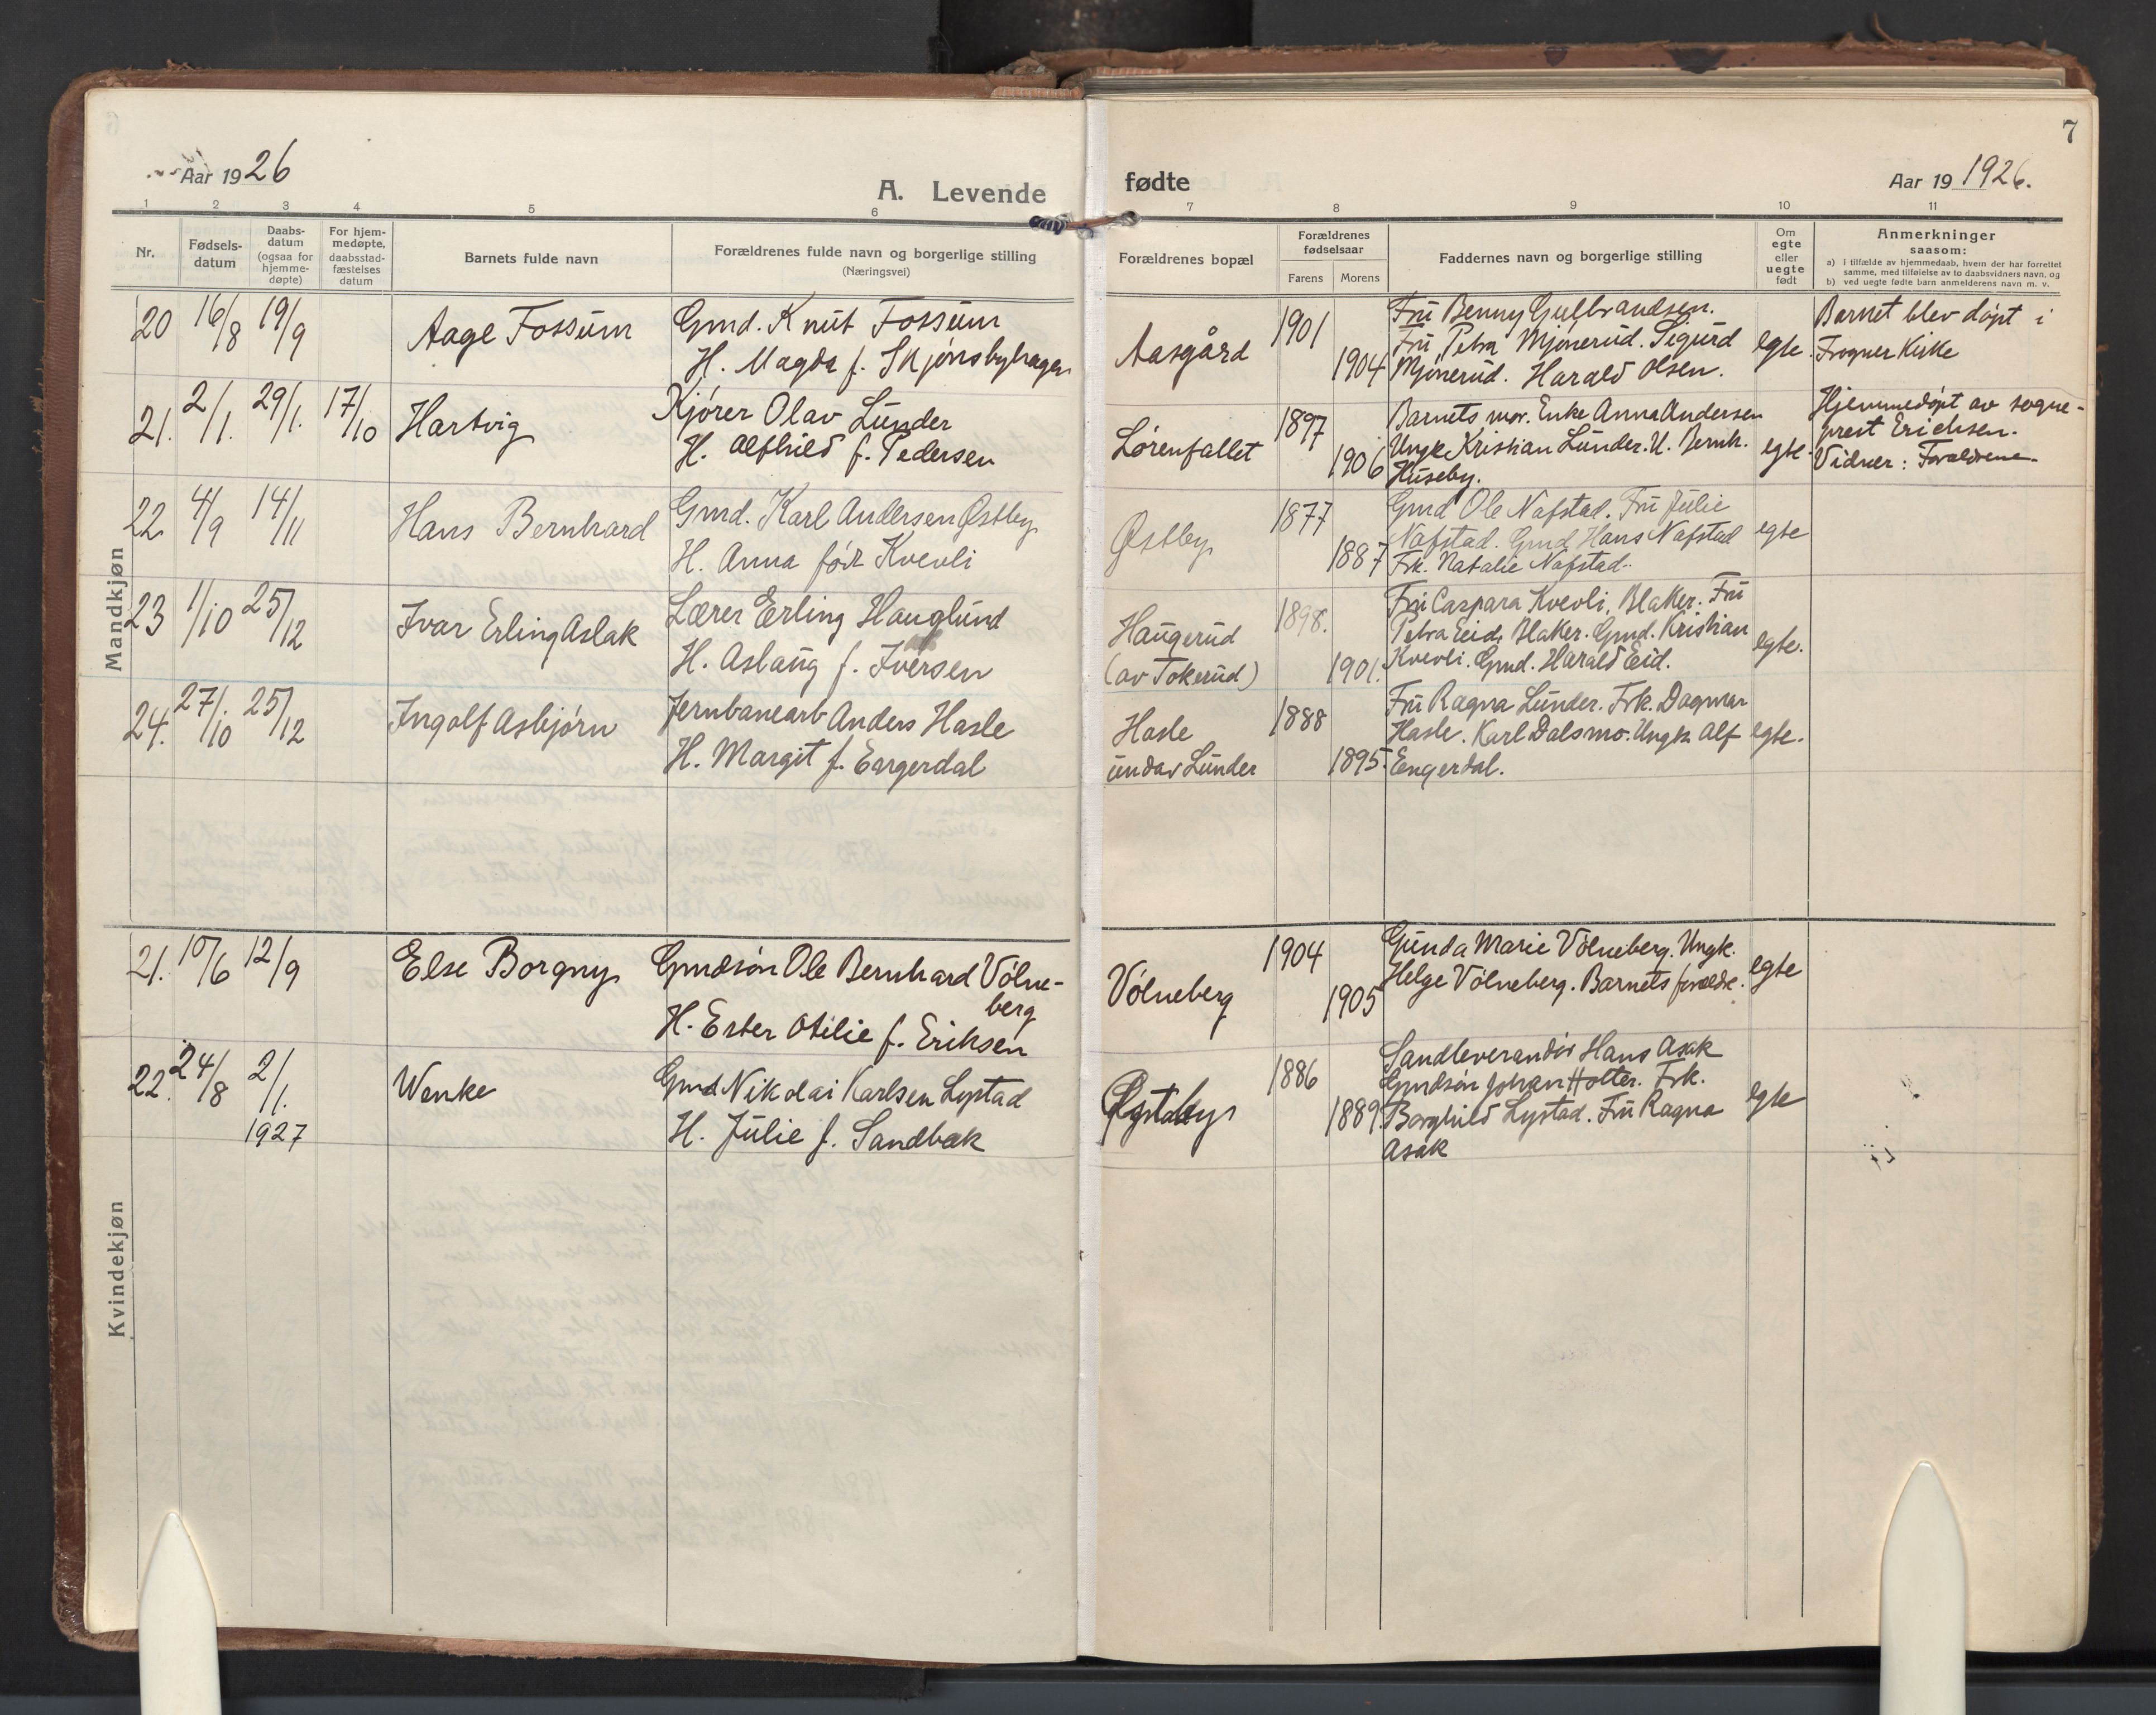 7
Aar 1926
A. Levende
fødte
Aar 19 1926.
1 2 3 4 5 6 7 8 9 10 11
Nr.
Fødsels-
datum
Daabs-
datum
(ogsaa for
hjemme-
døpte)
For hjem-
medøpte,
daabsstad-
fæstelses
datum
Barnets fulde navn
Forældrenes fulde navn og borgerlige stilling
(Næringsvei)
Forældrenes bopæl
Forældrenes
fødselsaar
Farens Morens
Faddernes navn og borgerlige stilling
Om
egte
eller
uegte
født
Anmerkninger
saasom:
a) i tilfælde av hjemmedaab, hvem der har forrettet
samme, med tilføielse av to daabsvidners navn, og
b) ved uegte fødte barn anmelderens navn m. v.
Mandkjøn
20 16/8 19/9
Aage Fossum
Gmd. Knut Fossum
H. Magda f. Skjønsbyhagen
Aasgård
1901
1904
Fru Benny Gulbrandsen.
Fru Petra Mjønerud. Sigurd
Mjønerud. Harald Olsen.
egte.
Barnet blev døpt i
Frogner Kirke
21. 2/1. 29/1. 17/10
Hartvig
Kjører Olav Lunder
H. Alfhild f. Pedersen
Lørenfallet
1897
1906
Barnets mor. Enke Anna Andersen
Ungk Kristian Lunder. U. Bernh.
Huseby.
egte.
Hjemmedøpt av sogne-
prest Erichsen.
Vidner: Forældrene.
22. 4/9 14/11
Hans Bernhard
Gmd. Karl Andersen Østby
H. Anna født Kvevli
Østby
1877
1887
Gmd Ole Nafstad. Fru Julie
Nafstad. Gmd Hans Nafstad
Frk. Natalie Nafstad.
egte
23 1/10 25/12
Ivar Erling Aslak
Lærer Erling Hauglund
H. Aslaug f. Iversen
Haugerud
(av Tokerud)
1898.
1901.
Fru Caspara Kvevli, Blaker. Fru
Petra Eid, Blaker. Gmd. Kristian
Kvevli. Gmd. Harald Eid.
egte.
24. 27/10 25/12
Ingolf Asbjørn
Jernbanearb Anders Hasle
H. Margit f. Engerdal
Hasle
undav Lunder
1888
1895.
Fru Ragna Lunder. Frk. Dagmar
Hasle. Karl Dalsmo. Ungk. Alf
Engerdal.
egte.
Kvindekjøn
21. 10/6 12/9
Else Borgny
Gmdsøn Ole Bernhard Vølne-
berg
H. Ester Otilie f. Eriksen
Vølneberg
1904
1905
Gunda Marie Vølneberg. Ungk.
Helge Vølneberg. Barnets forældre.
egte
22. 24/8 2/1.
1927
Wenke
Gmd Nikolai Karlsen Lystad
H. Julie f. Sandbæk
1886
1889.
Sandleverandør Hans Asak
Gmdsøn Johan Holter. Frk.
Borghild Lystad. Fru Ragna
Asak
egte